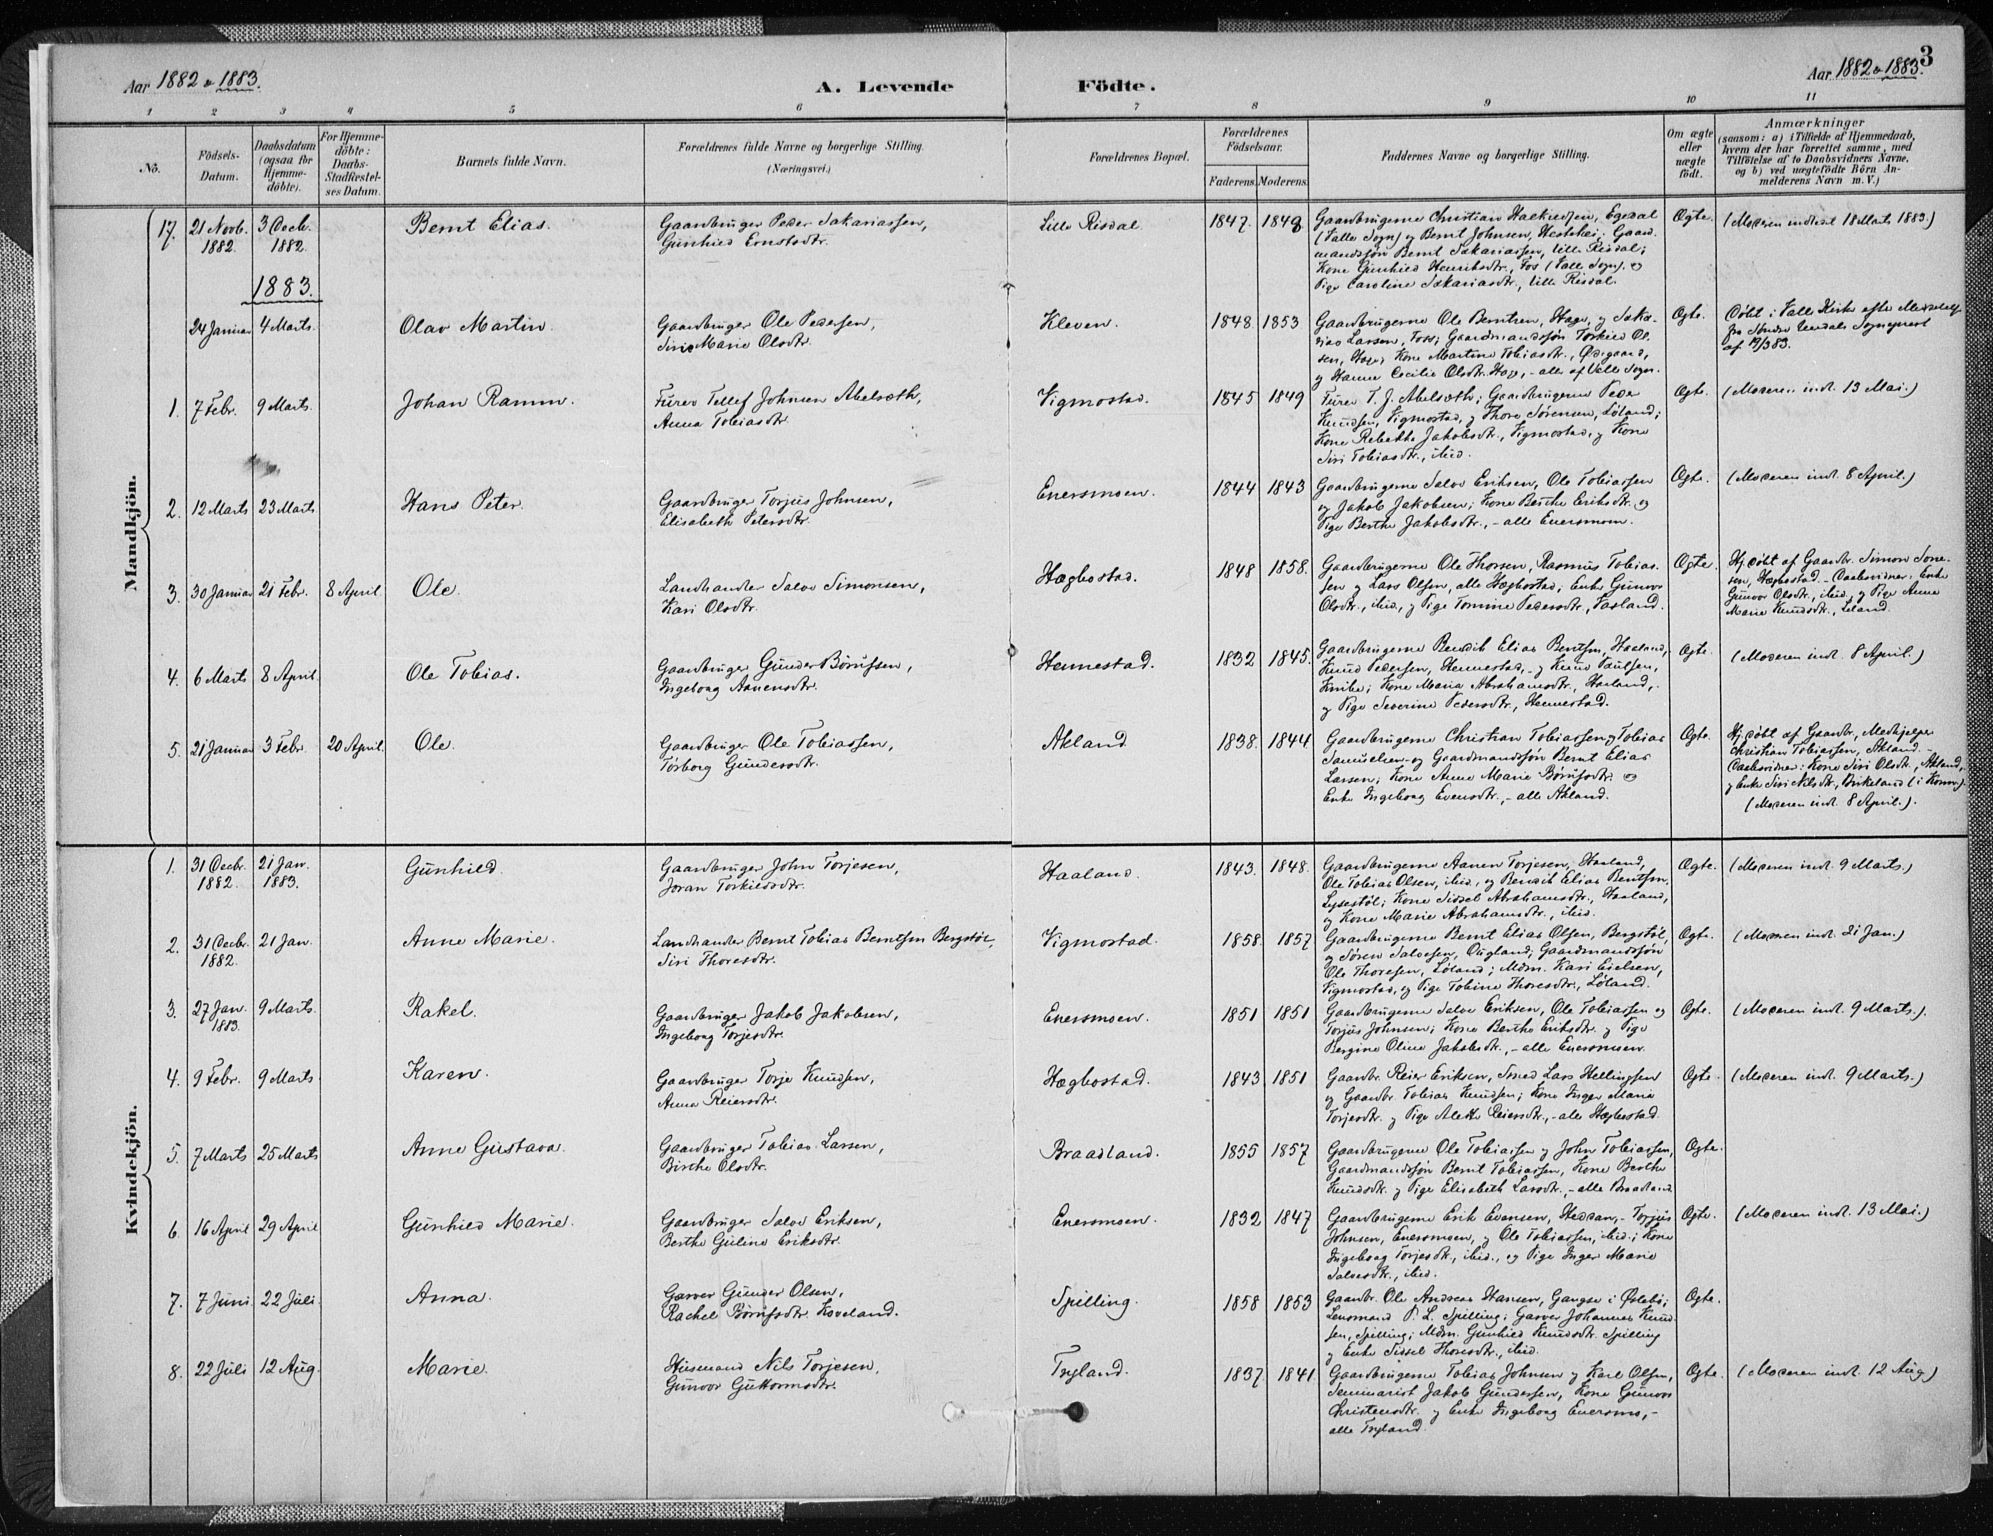 Aar 1882 & 1883.
A. Levende Födte.
Aar 1882 & 1883.
3
1 2 3 4 5 6 7 8 9 10 11
No.
Födsels-Datum.
Daabsdatum (ogsaa for Hjemmedöbte).
For Hjemmedöbte: Daabs-Stadfæstelses Datum.
Barnets fulde Navn.
Forældrenes fulde Navne og borgerlige Stilling.
(Næringsvei.)
Forældrenes Bopæl.
Forældrenes Födselsaar.
Faderens. Moderens.
Faddernes Navne og borgerlige Stilling.
Om ægte eller uægte födt.
Anmærkninger
(saasom: a) i Tilfælde af Hjemmedaab,
hvem der har forrettet samme, med
Tilföielse af to Daabsvidners Navne,
og b) ved uægtefödte Börn Anmelderens Navn m. V.)
Mandkjön.
17. 21 Novb. 1882. 3 Decb. 1882. Bernt Elias. Gaardbruger Peder Sakariassen, Gunhild Ernstsdtr. Lille Risdal. 1847. 1848
Gaardbrugerne Christian Egedal
(Valle Sogn) og Bernt Johnsen, Gaardmandssøn Bernt Sakariassen, Lille Risdal;
Kone Gunhild Henriksdtr., Fos (Valle Sogn), og
Pige Caroline Sakariasdtr., Lille Risdal.
Ægte. (Moderen indledet 18 Marts 1883.)
1883.
24 Januar 4 Marts. Olav Martin. Gaardbruger Ole Pedersen, Siri Marie Olsdtr. Kleven. 1848. 1853.
Gaardbrugerne Ole Berntsen, Hage, og Sakarias Larsen, Foss; Gaardmandssøn Torkild Olsen, Hage; Kone Martine Tobiasdtr., Ødegaard,
og Hanne Cecilie Olsdtr. Hage, - alle af Valle Sogn.
Ægte. Döbt i Valle Kirke efter
fra Søndre Undals Sogneprest
af 19/3 83.
1. 7 Febr. 9 Marts. Johan Ramm. Furer Tellef Johnsen Abelseth, Anna Tobiasdtr. Vigmostad. 1845 1849
Furer T. J. Abelseth; Gaardbrugerne Peder
Knudsen, Vigmostad, og Thore Sørensen, Løland;
Kone Rebekka Jakobsdtr., Vigmostad, og Kone
Siri Tobiasdtr., ibid.
Ægte. (Moderen indl. 13 Mai.)
2. 12 Marts 23 Marts Hans Peter. Gaardbruger Torjus Johnsen, Elisabeth Petersdtr. Enersmoen. 1844 1843
Gaardbrugerne Salve Eriksen, Ole Tobiassen
og Jakob Jakobsen; Kone Berthe Eriksdtr. og
Pige Berthe Jakobsdtr., - alle Enersmoen.
Ægte. (Moderen indl. 8 April.)
3. 30 Januar 21 Febr. 8 April. Ole. Landhandler Salve Simonsen, Kari Olsdtr. Hægbostad. 1848 1858.
Gaardbrugerne Ole Thorsen, Rasmus Tobiassen og Lars Olsen, alle Hægbostad; Enke Gunvor
Olsdtr., ibid., og Pige Tomine Pedersdtr., Fasland.
Ægte. Hj.döbt af Gaardbr. Simon
Hægbostad. - Daabsvidner: Enke
Gunvor Olsdtr., ibid., og Pige Anne
Marie Knudsdtr., Løland.
4. 6 Marts 8 April. Ole Tobias. Gaardbruger Gunder Børufsen, Ingeborg Aanensdtr. Hennestad. 1832 1845.
Gaardbrugerne Bendik Elias Berntsen, Haaland,
Knud Pedersen, Hennestad, - og Knud Paulsen,
Knibe; Kone Maria Abrahamsdtr., Haaland,
og Pige Severine Pedersdtr., Hennestad.
Ægte. (Moderen indl. 8 April.)
5. 21 Januar 3 Febr. 20 April. Ole. Gaardbruger Ole Tobiassen, Torborg Gundersdtr. Akland 1838. 1844.
Gaardbrugerne Christian Tobiassen og Tobias
Samuelsen og Gaardmandssøn Bernt Elias
Larsen; Kone Anne Marie Børufsdtr. og
Enke Ingeborg Evensdtr., - alle Akland.
Ægte. Hj.döbt af Gaardbr., Medhjelper
Christian Tobiassen, Akland. -
Daabsvidner: Kone Siri Olsdtr., Akland,
og Enke Siri Nilsdtr., Birkeland
(Moderen indl. 8 April.)
Kvindekjön.
1. 31 Decbr. 1882. 21 Jan. 1883. Gunhild. Gaardbruger John Torjesen, Joran Torkildsdtr. Haaland. 1843. 1848.
Gaardbrugerne Aanen Torjesen, Haaland,
Ole Tobias Olsen, ibid., og Bendik Elias Berntsen,
Lysestøl; Kone Sissel Abrahamsdtr., Haaland,
og Kone Marie Abrahamsdtr., ibid.
Ægte. (Moderen indl. 9 Marts.)
2. 31 Decbr. 1882. 21 Jan. Anne Marie. Landhandler Bernt Tobias Berntsen Bergstøl, Siri Thoresdtr. Vigmostad. 1858. 1857
Gaardbrugerne Bernt Elias Olsen, Bergstøl,
og Søren Salvesen, Gaardmandssøn
Ole Thoresen, Løland; Mdm. Kari Eielsen,
Vigmostad, og Pige Tobine Thoresdtr., Løland.
Ægte. (Moderen indl. 21 Jan.)
3. 27 Jan. 1883. 9 Marts. Rakel. Gaardbruger Jakob Jakobsen, Ingeborg Torjesdtr. Enersmoen. 1851 1851
Gaardbrugerne Salve Eriksen, Ole Tobiassen og
Torjus Johnsen; Kone Berthe Eriksdtr. og Pige
Bergine Oline Jakobsdtr., - alle Enersmoen.
Ægte. (Moderen indl. 9 Marts.)
4. 9 Febr. 9 Marts. Karen. Gaardbruger Torje Knudsen, Anna Reiersdtr. Hægbostad. 1843 1851
Gaardbr. Reier Eriksen, Smed Lars Hellingsen
og Gaardbr. Tobias Knudsen; Kone Inger Maria
Torjesdtr. og Pige Alette Reiersdtr., - alle Hægbostad.
Ægte. (Moderen indl. 9 Marts.)
5. 7 Marts 25 Marts Anne Gustava. Gaardbruger Tobias Larsen, Birthe Olsdtr. Braadland. 1855 1857
Gaardbrugerne Ole Tobiassen og John Tobiassen,
Gaardmandssøn Bernt Tobiassen, Kone Berthe
Knudsdtr. og Pige Elisabeth Larsdtr., - alle Braadland
Ægte.
6. 16 April 29 April Gunhild Marie. Gaardbruger Salve Eriksen, Berthe Guline Eriksdtr. Enersmoen. 1832 1847
Gaardbrugerne Erik Evensen, Heddan, - Torjus
Johnsen, Enersmoen, og Ole Tobiassen, ibid.; Kone
Ingeborg Torjesdtr., ibid., og Pige Inger Marie
Salvesdtr., ibid.
Ægte. (Moderen indl. 13 Mai.)
7. 7 Juni 22 Juli. Anna. Garver Gunder Olsen, Rachel Børufsdtr. Koveland. Spilling. 1858 1853
Gaardbr. Ole Andreas Hansen, Gangsø i Øslebø;
Lensmand P. L. Spilling; Garver Johannes Knudsen, Spilling; Mdm. Gunhild Knudsdtr. Spilling
og Enke Sissel Thoresdtr., ibid.
Ægte.
8. 22 Juli 12 Aug. Marie. Husmand Nils Torjesen, Gunvor Guttormsdtr. Tryland. 1837 1841.
Gaardbrugerne Tobias Johnsen og Karl Olsen,
Seminarist Jakob Gundersen, Kone Gunvor
Christensdtr. og Enke Ingeborg -
alle Tryland.
Ægte. (Moderen indl. 12 Aug.)